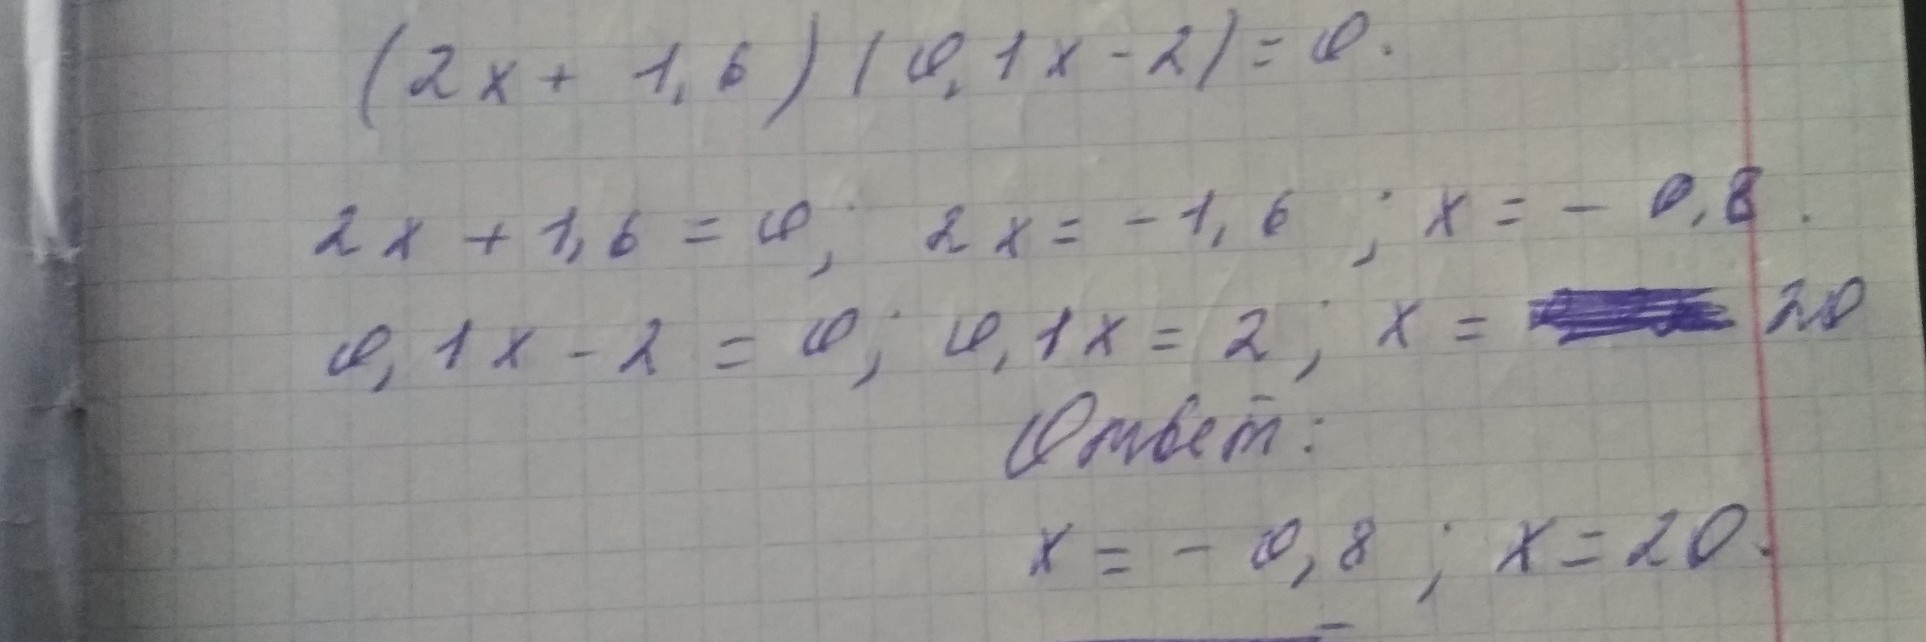 (2x + 1,6)(0,1x - 2) = 0.
2x + 1,6 = 0; 2x = -1,6; x = - 0,8.
0,1x - 2 = 0; 0,1x = 2; x = 20
Ответ:
x = - 0,8; x = 20.